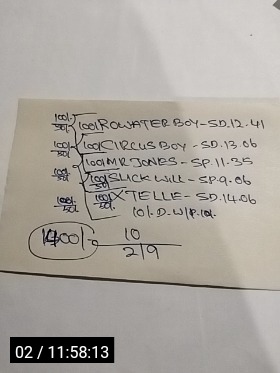 100/- 50/- 100/ ROWATER BOY - SD.12.41
100/- 50/- 100/ CIRCUS BOY - SD.13.06
100/ MR JONES - SP.11.35
100/- 50/- 100/- 50/- SLICK WILL - SP.9.06
100/- 50/- 100/- 50/- X TELLE - SD.14.06
10/- D-W/P.10/-
00/-
10
2/9
02 / 11:58:13